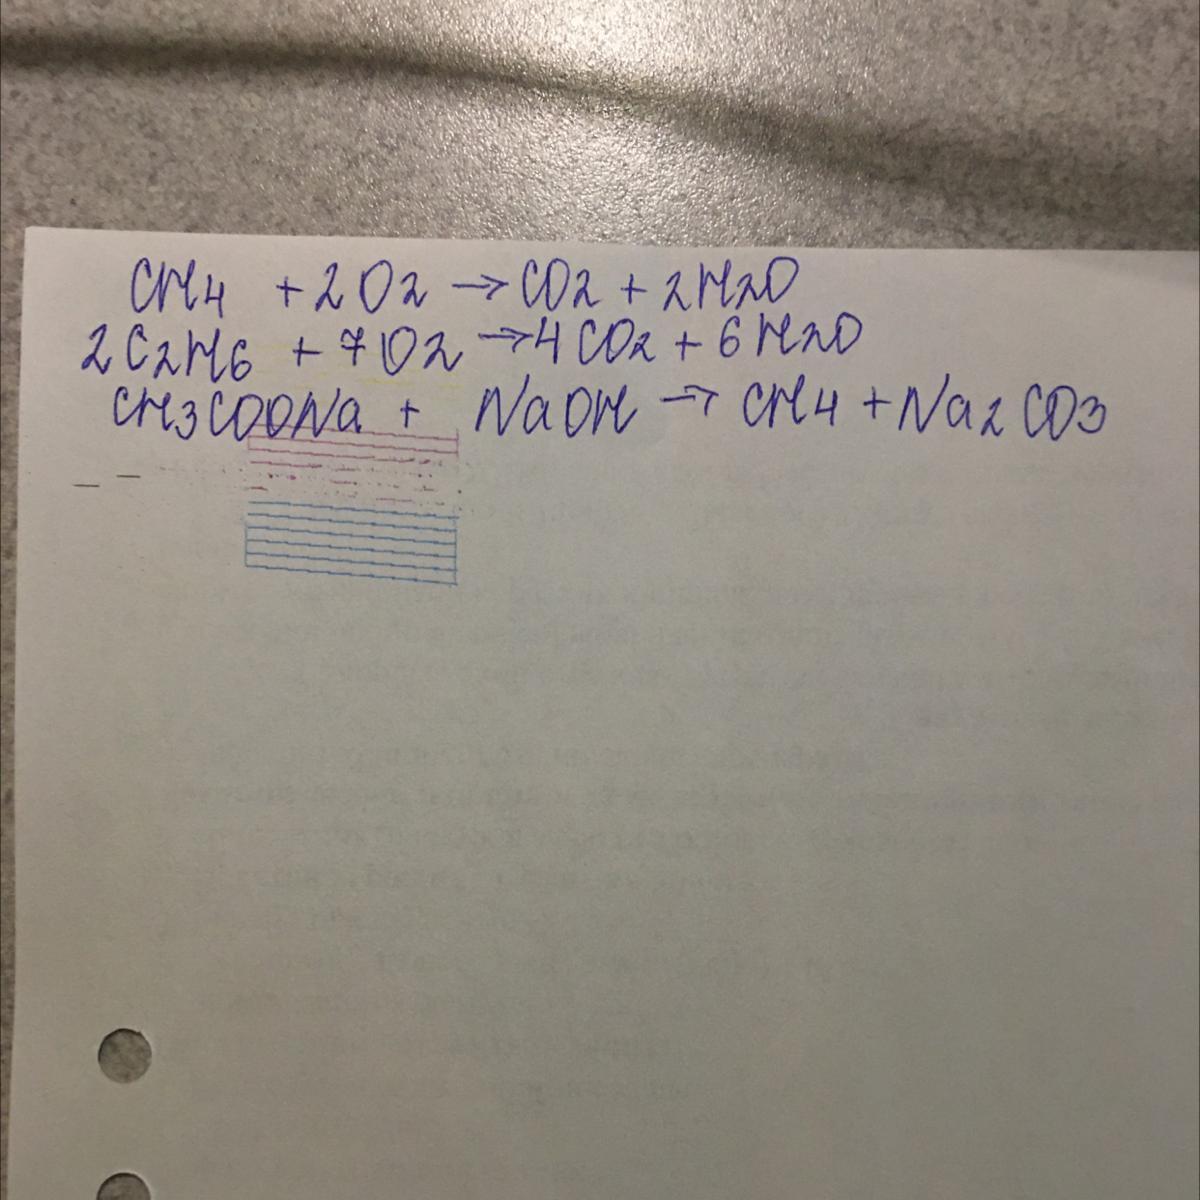 CH4 + 2O2 → CO2 + 2H2O
2C2H6 + 7O2 → 4CO2 + 6H2O
CH3COONa + NaOH → CH4 + Na2CO3